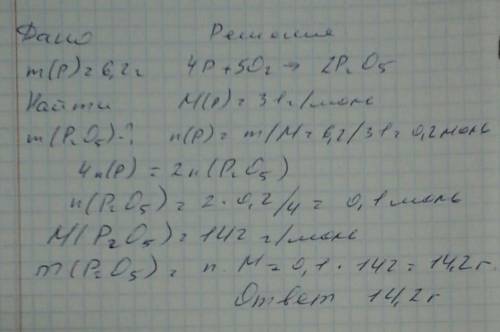 Дано Решение
m(P) = 6,2г 4P + 5O₂ → 2P₂O₅
Найти M(P) = 31г/моль
m(P₂O₅)-? n(P) = m/M = 6,2/31 = 0,2моль
4n(P) = 2n(P₂O₅)
n(P₂O₅) = 2·0,2/4 = 0,1моль
M(P₂O₅) = 142 г/моль
m(P₂O₅) = n·M = 0,1·142 = 14,2г.
Ответ 14,2г